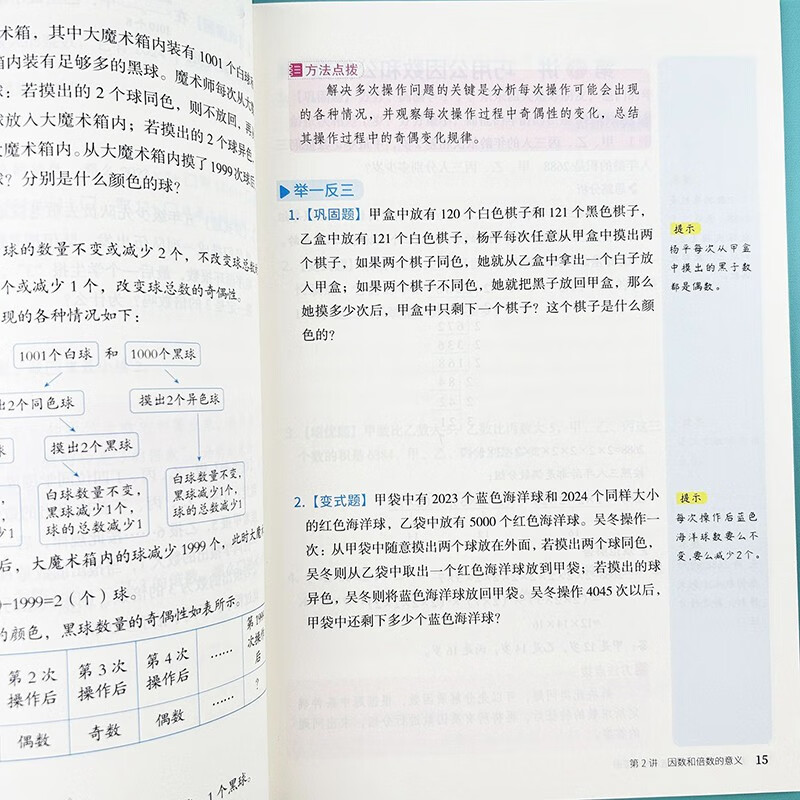 术箱，其中大魔术箱内装有 1001 个白球
箱内装有足够多的黑球。魔术师每次从大
球：若摸出的 2 个球同色，则不放回，再
球放入大魔术箱内；若摸出的 2 个球异色
大魔术箱内。从大魔术箱内摸了 1999 次球后
球？分别是什么颜色的球？
球的数量不变或减少 2 个，不改变球总数的
个或减少 1 个，改变球总数的奇偶性。
现的各种情况如下：
1001个白球 和 1000个黑球
出2个同色球
摸出2个异色球
摸出2个黑球
白球数量不变，
黑球减少1个，
球的总数减少1
白球数量不变，
黑球减少1个，
球的总数减少1
后，大魔术箱内的球减少 1999 个，此时大魔
-1999=2（个）球。
的颜色，黑球数量的奇偶性如表所示。
第 2 次
操作后
第 3 次
操作后
第 4 次
操作后
……
次操作
后
偶数
奇数
偶数
……
?
1 个黑球
方法点拨
解决多次操作问题的关键是分析每次操作可能会出现
的各种情况，并观察每次操作过程中奇偶性的变化，总结
其操作过程中的奇偶变化规律。
举一反三
1.【巩固题】甲盒中放有 120 个白色棋子和 121 个黑色棋子，
乙盒中放有 121 个白色棋子，杨平每次任意从甲盒中摸出两
个棋子，如果两个棋子同色，她就从乙盒中拿出一个白子放
入甲盒；如果两个棋子不同色，她就把黑子放回甲盒，那么
她摸多少次后，甲盒中只剩下一个棋子？这个棋子是什么颜
色的？
提示
杨平每次从甲盒
中摸出的黑子数
都是偶数。
2.【变式题】甲袋中有 2023 个蓝色海洋球和 2024 个同样大小
的红色海洋球，乙袋中放有 5000 个红色海洋球。吴冬操作一
次：从甲袋中随意摸出两个球放在外面，若摸出两个球同色，
吴冬则从乙袋中取出一个红色海洋球放到甲袋；若摸出的球
异色，吴冬则将蓝色海洋球放回甲袋。吴冬操作 4045 次以后，
甲袋中还剩下多少个蓝色海洋球？
提示
每次操作后蓝色
海洋球数要么不
变，要么减少2个。
第 2 讲 因数和倍数的意义 15